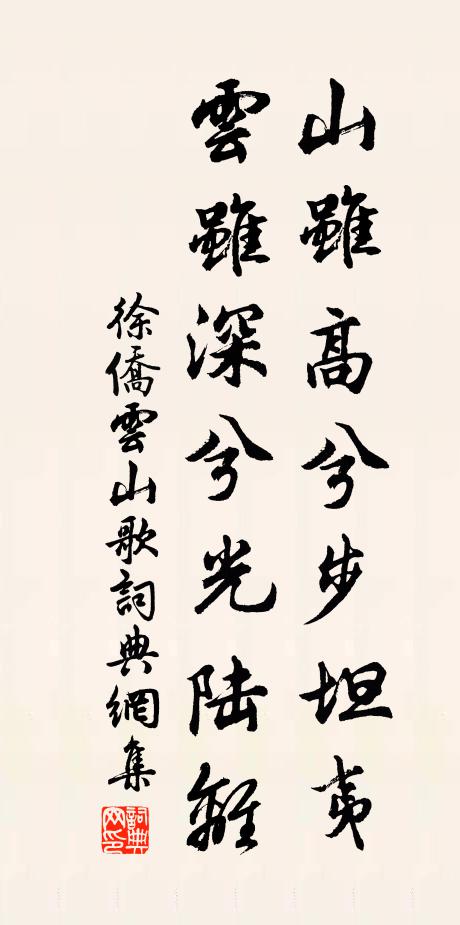 山雖高兮步坦夷
雲雖深兮光陆離
徐僑雲山歌詞典網集
詞典
网印